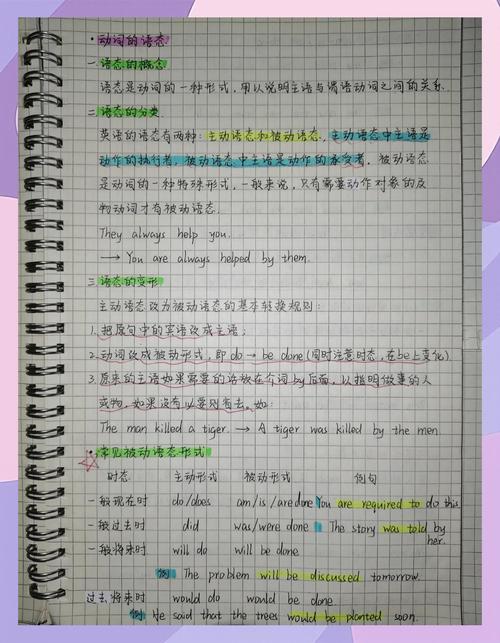 ·动词的语态
一.语态的概念
语态是动词的一种形式，用以说明主语与谓语动词之间的关系.
二.语态的分类
英语的语态有两种：主动语态和被动语态，主动语态中主语是
动作的执行者，被动语态中主语是动作的承受者，被动语态
是动词的一种特殊形式，一般来说，只有需要动作对象的及
物动词才有被动语态.
They always help you.
→ You are always helped by them.
三.语态的变形
主动语态改为被动语态的基本转换规则：
1.把原句中的宾语改成主语；
2.动词改成被动形式，即do→be done(同时注意时态，在be上变化)
3.原来的主语如果需要的话放在介词by后面，以指明做事的人
或物，如果没有必要则省去。如：
The man killed a tiger. → A tiger was killed by the men
·常见被动语态形式
时态 主动形式 被动形式 例句
一般现在时 do/does am/is/are done You are required to do this
一般过去时 did was/were done The story was told by
her.
一般将来时 will do will be done
例 The problem will be discussed tomorrow.
过去将来时 would do would be done
例 He said that the trees would be planted soon.